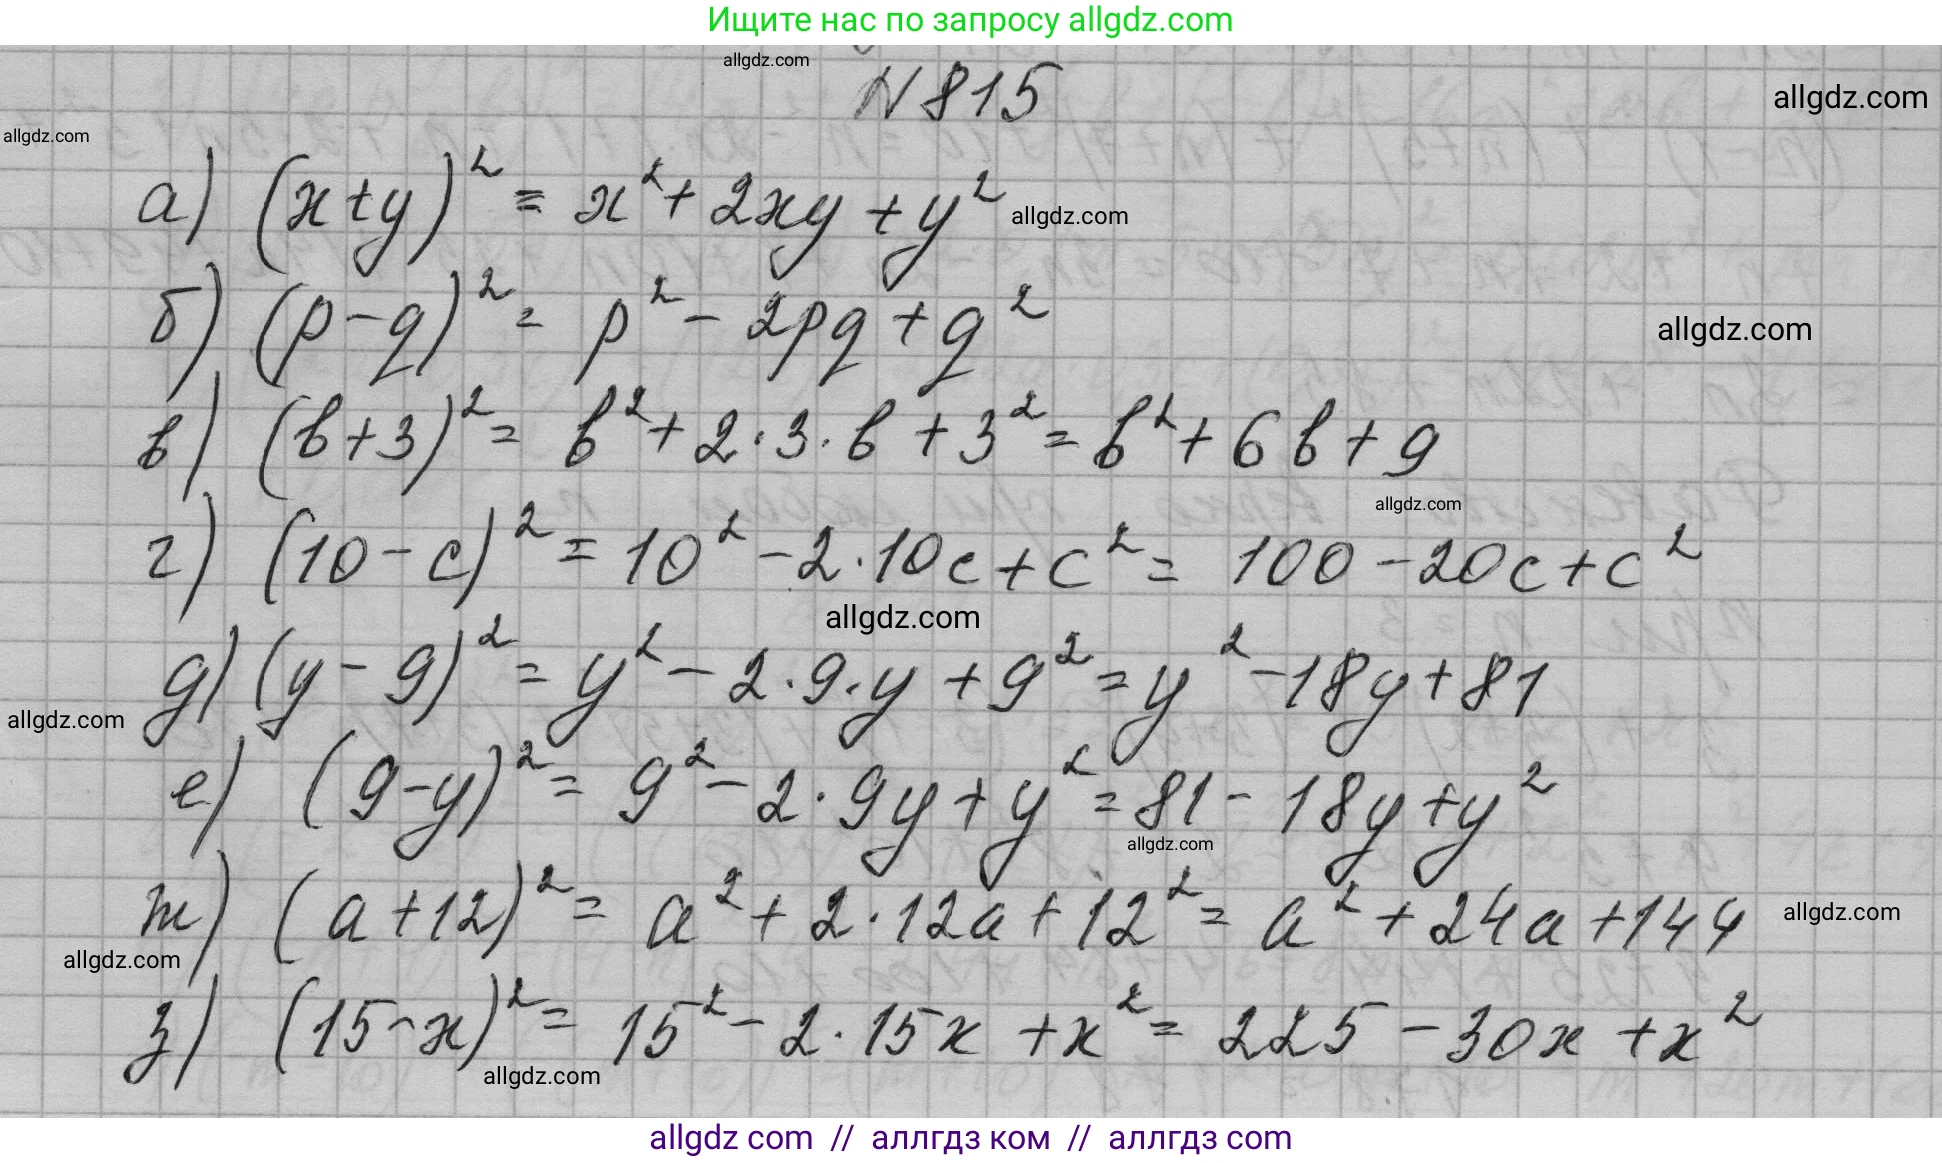 Ищите нас по запросу allgdz.com
allgdz.com
N 815
allgdz.com
allgdz.com
а) (x+y)² = x² + 2xy + y²
allgdz.com
б) (p-q)² = p² - 2pq + q²
allgdz.com
в) (b+3)² = b² + 2·3·b + 3² = b² + 6b + 9
allgdz.com
г) (10-c)² = 10² - 2·10c + c² = 100 - 20c + c²
allgdz.com
д) (y-9)² = y² - 2·9·y + 9² = y² - 18y + 81
allgdz.com
е) (9-y)² = 9² - 2·9y + y² = 81 - 18y + y²
allgdz.com
ж) (a+12)² = a² + 2·12a + 12² = a² + 24a + 144
allgdz.com
allgdz.com
з) (15-x)² = 15² - 2·15x + x² = 225 - 30x + x²
allgdz.com
allgdz com // аллгдз ком // аллгдз com